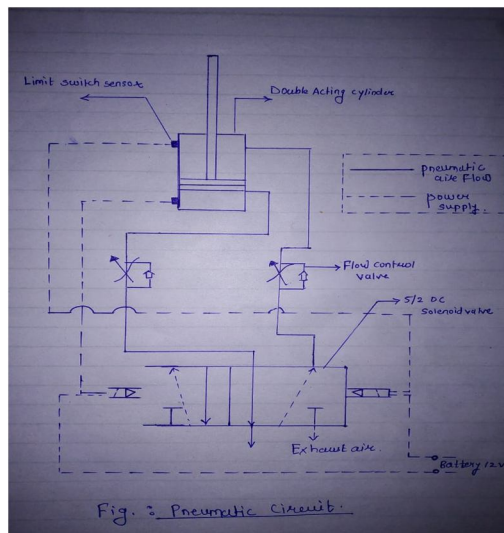 Limit switch sensor
Double Acting cylinder
pneumatic
air Flow
power
supply.
Flow control
valve
5/2 DC
Solenoid valve
Exhaust air
Battery 12V
Fig. : Pneumatic Circuit.